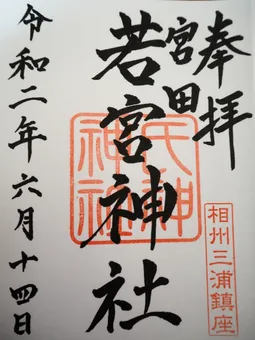 奉拝
宮田
若宮神社
氏神
神社
相州三浦鎮座
令和二年六月十四日